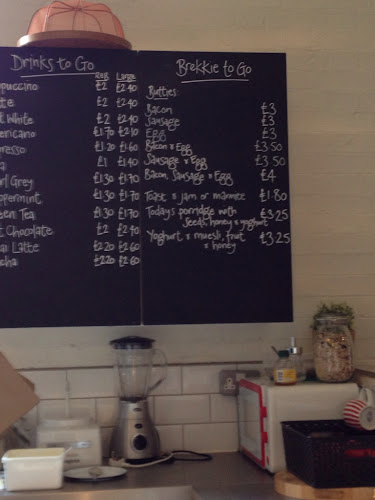 Drinks to Go
Reg Large
ppuccino £2 £2.40
tte £2 £2.40
t White £2 £2.40
ericano £1.70 £2.10
presso £1.20 £1.60
a £1 £1.40
rl Grey £1.30 £1.70
ppermint £1.30 £1.70
een Tea £1.30 £1.70
t Chocolate £2 £2.40
ai Latte £2.20 £2.60
cha £2.20 £2.60
Brekkie to Go
Butties:
Bacon £3
Sausage £3
Egg £3
Bacon + Egg £3.50
Sausage + Egg £3.50
Bacon, Sausage + Egg £4
Toast + jam or marmite £1.80
Today's porridge with £3.25
seeds, honey + yoghurt
Yoghurt + muesli, fruit £3.25
+ honey